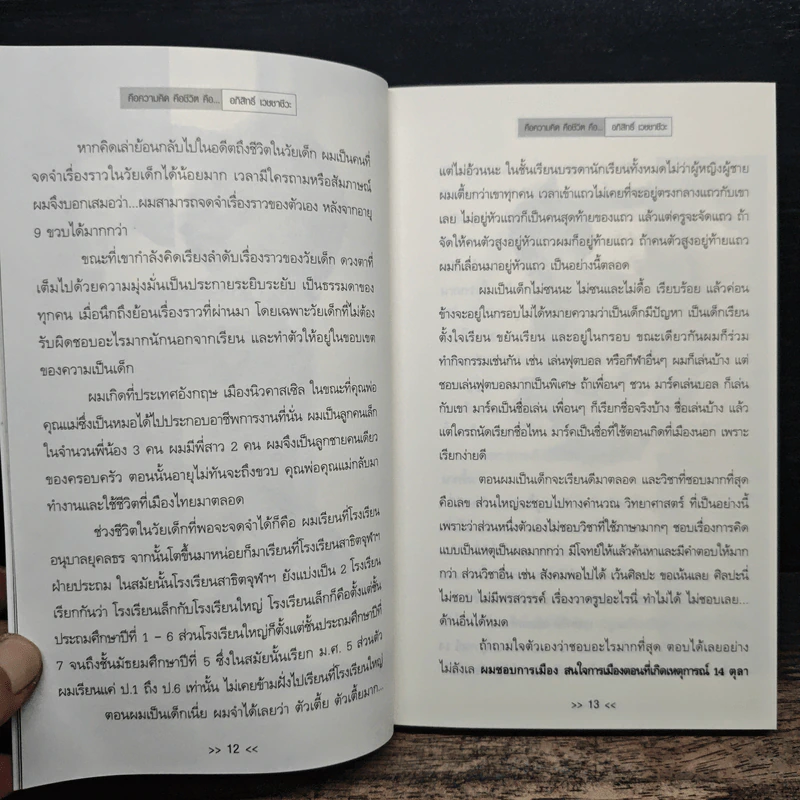 คือความคิด คือชีวิต คือ... อภิสิทธิ์ เวชชาชีวะ
หากคิดเล่าย้อนกลับไปในอดีตถึงชีวิตในวัยเด็ก ผมเป็นคนที่
จดจำเรื่องราวในวัยเด็กได้น้อยมาก เวลามีใครถามหรือสัมภาษณ์
ผมจึงบอกเสมอว่า...ผมสามารถจดจำเรื่องราวของตัวเอง หลังจากอายุ
9 ขวบได้มากกว่า
ขณะที่เขากำลังคิดเรียงลำดับเรื่องราวของวัยเด็ก ดวงตาที่
เต็มไปด้วยความมุ่งมั่นเป็นประกายระยิบระยับ เป็นธรรมดาของ
ทุกคน เมื่อนึกถึงย้อนเรื่องราวที่ผ่านมา โดยเฉพาะวัยเด็กที่ไม่ต้อง
รับผิดชอบอะไรมากนักนอกจากเรียน และทำตัวให้อยู่ในขอบเขต
ของความเป็นเด็ก
ผมเกิดที่ประเทศอังกฤษ เมืองนิวคาสเซิล ในขณะที่คุณพ่อ
คุณแม่ซึ่งเป็นหมอได้ไปประกอบอาชีพการงานที่นั่น ผมเป็นลูกคนเล็ก
ในจำนวนพี่น้อง 3 คน ผมมีพี่สาว 2 คน ผมจึงเป็นลูกชายคนเดียว
ของครอบครัว ตอนนั้นอายุไม่ทันจะถึงขวบ คุณพ่อคุณแม่กลับมา
ทำงานและใช้ชีวิตที่เมืองไทยมาตลอด
ช่วงชีวิตในวัยเด็กที่พอจะจดจำได้ก็คือ ผมเรียนที่โรงเรียน
อนุบาลยุคลธร จากนั้นโตขึ้นมาหน่อยก็มาเรียนที่โรงเรียนสาธิตจุฬาฯ
ฝ่ายประถม ในสมัยนั้นโรงเรียนสาธิตจุฬาฯ ยังแบ่งเป็น 2 โรงเรียน
เรียกกันว่า โรงเรียนเล็กกับโรงเรียนใหญ่ โรงเรียนเล็กก็คือตั้งแต่ชั้น
ประถมศึกษาปีที่ 1 - 6 ส่วนโรงเรียนใหญ่ก็ตั้งแต่ชั้นประถมศึกษาปีที่
7 จนถึงชั้นมัธยมศึกษาปีที่ 5 ซึ่งในสมัยนั้นเรียก ม.ศ. 5 ส่วนตัว
ผมเรียนแค่ ป.1 ถึง ป.6 เท่านั้น ไม่เคยข้ามฝั่งไปเรียนที่โรงเรียนใหญ่
ตอนผมเป็นเด็กเนี่ย ผมจำได้เลยว่า ตัวเตี้ย ตัวเตี้ยมาก...
>> 12 <<
คือความคิด คือชีวิต คือ... อภิสิทธิ์ เวชชาชีวะ
แต่ไม่อ้วนนะ ในชั้นเรียนบรรดานักเรียนทั้งหมดไม่ว่าผู้หญิงผู้ชาย
ผมเตี้ยกว่าเขาทุกคน เวลาเข้าแถวไม่เคยที่จะอยู่ตรงกลางแถวกับเขา
เลย ไม่อยู่หัวแถวก็เป็นคนสุดท้ายของแถว แล้วแต่ครูจะจัดแถว ถ้า
จัดให้คนตัวสูงอยู่หัวแถวผมก็อยู่ท้ายแถว ถ้าคนตัวสูงอยู่ท้ายแถว
ผมก็เลื่อนมาอยู่หัวแถว เป็นอย่างนี้ตลอด
ผมเป็นเด็กไม่ซนนะ ไม่ซนและไม่ดื้อ เรียบร้อย แล้วค่อน
ข้างจะอยู่ในกรอบไม่ได้หมายความว่าเป็นเด็กมีปัญหา เป็นเด็กเรียน
ตั้งใจเรียน ขยันเรียน และอยู่ในกรอบ ขณะเดียวกันผมก็ร่วม
ทำกิจกรรมเช่นกัน เช่น เล่นฟุตบอล หรือกีฬาอื่นๆ ผมก็เล่นบ้าง แต่
ชอบเล่นฟุตบอลมากเป็นพิเศษ ถ้าเพื่อนๆ ชวน มาร์คเล่นบอล ก็เล่น
กับเขา มาร์คเป็นชื่อเล่น เพื่อนๆ ก็เรียกชื่อจริงบ้าง ชื่อเล่นบ้าง แล้ว
แต่ใครถนัดเรียกชื่อไหน มาร์คเป็นชื่อที่ใช้ตอนเกิดที่เมืองนอก เพราะ
เรียกง่ายดี
ตอนผมเป็นเด็กจะเรียนดีมาตลอด และวิชาที่ชอบมากที่สุด
คือเลข ส่วนใหญ่จะชอบไปทางคำนวณ วิทยาศาสตร์ ที่เป็นอย่างนี้
เพราะว่าส่วนหนึ่งตัวเองไม่ชอบวิชาที่ใช้ภาษามากๆ ชอบเรื่องการคิด
แบบเป็นเหตุเป็นผลมากกว่า มีโจทย์ให้แล้วค้นหาและมีคำตอบให้มาก
กว่า ส่วนวิชาอื่น เช่น สังคมพอไปได้ เว้นศิลปะ ขอเน้นเลย ศิลปะนี่
ไม่ชอบ ไม่มีพรสวรรค์ เรื่องวาดรูปอะไรนี่ ทำไม่ได้ ไม่ชอบเลย...
ด้านอื่นได้หมด
ถ้าถามใจตัวเองว่าชอบอะไรมากที่สุด ตอบได้เลยอย่าง
ไม่ลังเล ผมชอบการเมือง สนใจการเมืองตอนที่เกิดเหตุการณ์ 14 ตุลา
>> 13 <<